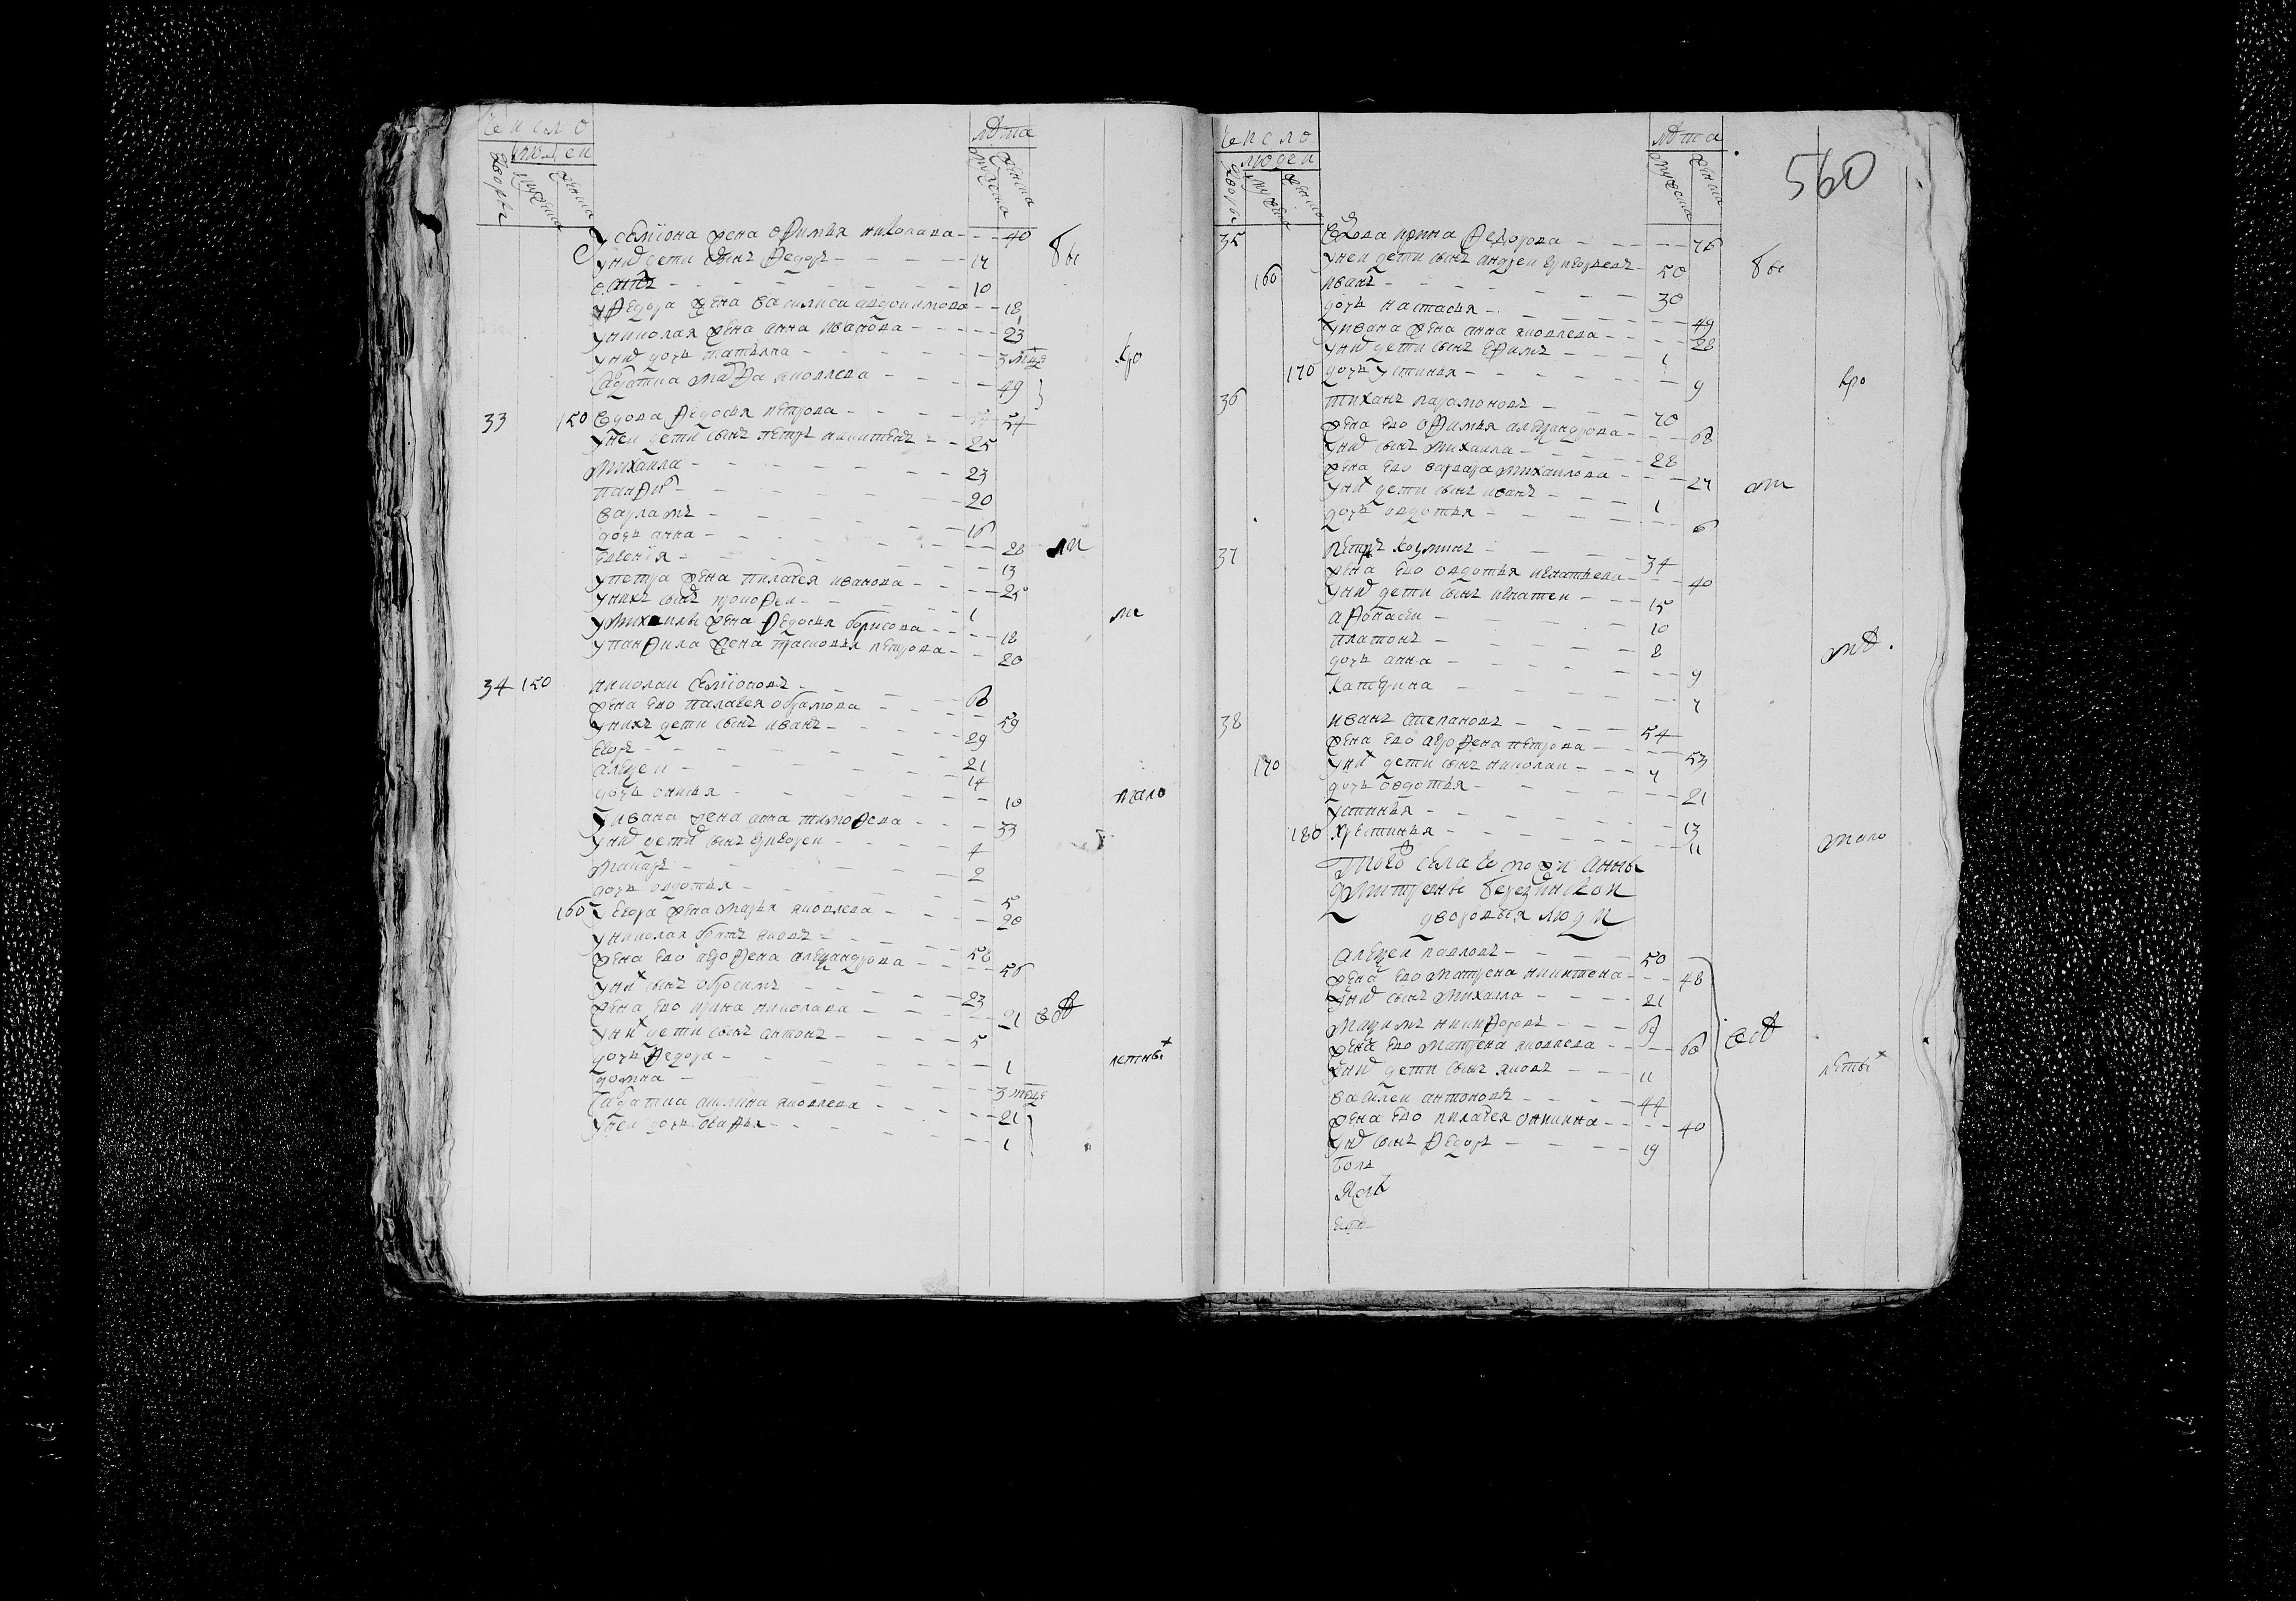 число
людей
дворы
мужеска
женска
лѣта
мужеска
женска
У семиона жена офимья николаева 40 бы
у них дети сынъ Федоръ 17
10
у Федора жена василиса 18
у николая жена анна иванова 23
у них дочь татьяна 3 мца кро
салдатка марфа яковлева 49
33 150 вдова Федосья петрова 54
у неи дети сынъ петръ никитинъ 25
михаила 23
панфил 20
варламъ 16
дочь анна 28 ли
евгения 13
у петра жена пилагея иванова 25
у нихъ сынъ прокофеи 1
у михаилы жена Федосья борисова 18 ле
у панфила жена прасковья петрова 20
34 150 николаи семионовъ 66
жена ево палагея обрамова 59
у нихъ дети сынъ иванъ 29
егоръ 21
алеѯеи 14
дочь 10 мало
у ивана жена анна тимофеева 33
у них дети сынъ григореи 4
макаръ 2
дочь овдотья 5
160 у егора жена марья яковлева 20
у николая братъ яковъ 58
жена ево аграфена алеѯандрова 56
у них сынъ обросимъ 23
жена ево ирина николаева 21 ввѣ
у них дети сынъ антонъ 5
дочь Федора 1 летны
домна 3 мца
салдатка акилина яковлева 21
у неи дочь 1
560
число
людеи
дворы
мужеска
женска
лѣта
мужеска
женска
35 вдова ирина Федорова 76
у неи дети сынъ андреи григорьевъ 50 бы
160 иванъ 30
дочь настасья 49
у ивана жена анна яковлева 28
у них дети сынъ ефимъ 1
170 дочь устинья 9 кро
36 тиханъ парамоновъ 70
жена ево офимья алеѯандрова 68
у них сынъ михаила 28
жена ево варвара михаилова 27
у них дети сынъ иванъ 1
дочь овдотья 6
37 петръ козминъ 34
жена ево овдотья игнатьева 40
у них дети сынъ игнатеи 15
афонасеи 10
платонъ 8
дочь анна 9
катерина 7
38 иванъ степановъ 54
жена ево аграфена петрова 53
170 у них дети сынъ николаи 7
дочь овдотья 21
устинья 13
180 христинья 11 мало
Тогож села гпжи анны
дмитревны березинскои
дворовыя люди
алеѯеи павловъ 50
жена ево матрена никитина 48
у них сынъ михаила 21
маѯимъ никифоровъ 63
жена ево матрена яковлева 60
у них дети сынъ яковъ 11 летны
василеи антоновъ 44
жена ево пилагея оникина 40
у них сынъ Федоръ 19